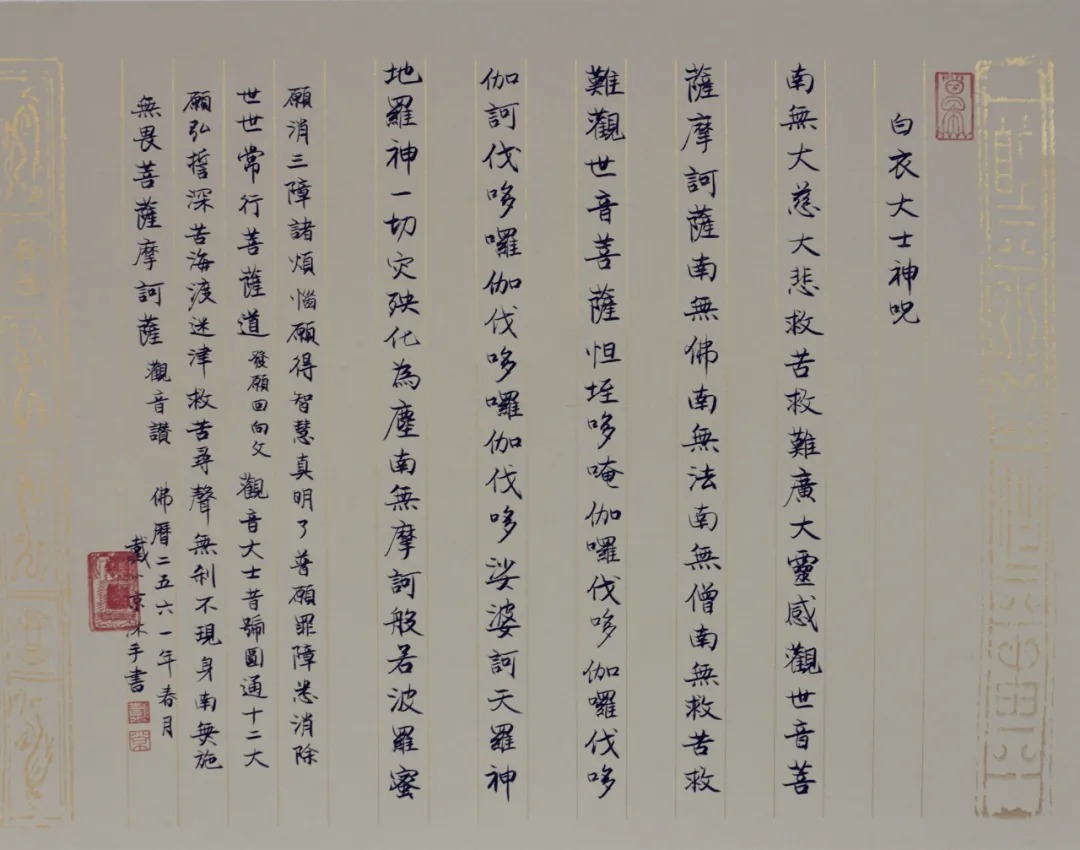 白衣大士神呪
南無大慈大悲救苦救難廣大靈感觀世音菩
薩摩訶薩南無佛南無法南無僧南無救苦救
難觀世音菩薩怛垤哆唵伽囉伐哆伽囉伐哆
伽訶伐哆囉伽伐哆囉伽伐哆娑婆訶天羅神
地羅神一切灾殃化為塵南無摩訶般若波羅蜜
願消三障諸煩惱願得智慧真明了普願罪障悉消除
世世常行菩薩道 發願回向文 觀音大士昔號圓通十二大
願弘誓深苦海渡迷津救苦尋聲無刹不現身南無施
無畏菩薩摩訶薩 觀音讚 佛曆二五六一年春月
戴京沐手書